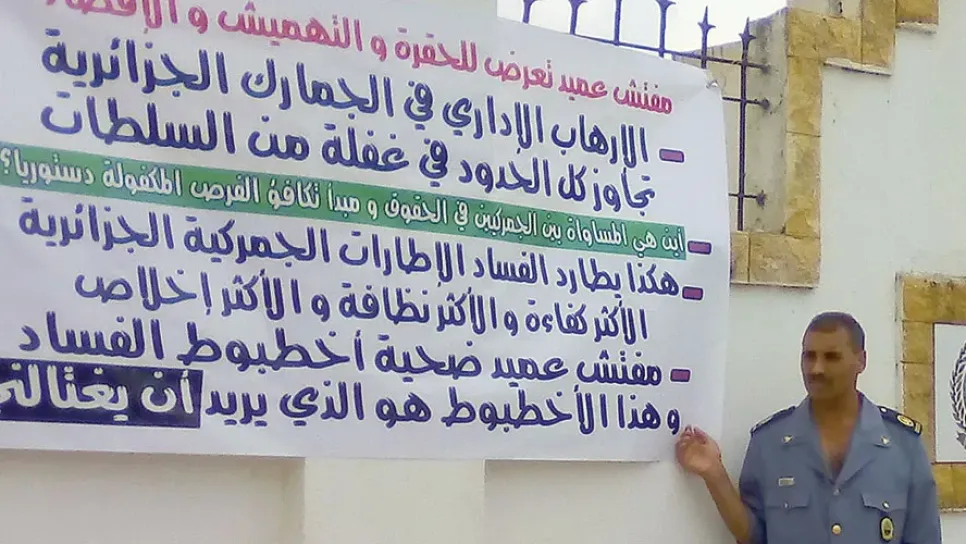 مفتش عميد تعرض للحقرة و التهميش و الإقصاء
- الإرهاب الإداري في الجمارك الجزائرية
تجاوز كل الحدود في غفلة من السلطات
- أين هي المساواة بين الجمركيين في الحقوق و مبدأ تكافؤ الفرص المكفولة دستوريا؟
- هكذا يطارد الفساد الإطارات الجمركية الجزائرية
الأكثر كفاءة و الأكثر نظافة و الأكثر إخلاص
- مفتش عميد ضحية أخطبوط الفساد
و هذا الأخطبوط هو الذي يريد أن يغتالني